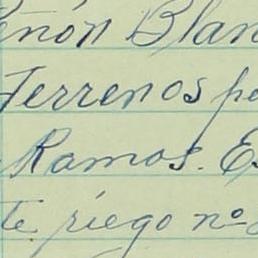 eñón Blan
Terrenos pa
Ramos. Es
te riego nº